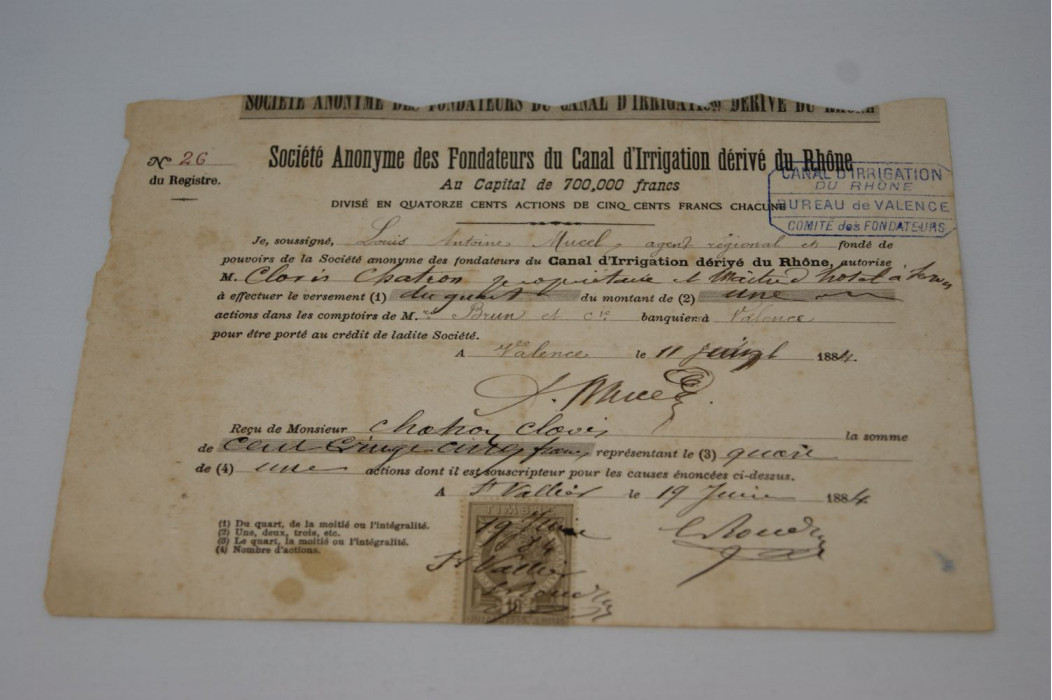 SOCIÉTÉ ANONYME DES FONDATEURS DU CANAL D'IRRIGATION DÉRIVÉ DU RHÔNE
N° 26
du Registre.
Société Anonyme des Fondateurs du Canal d'Irrigation dérivé du Rhône
Au Capital de 700,000 francs
DIVISÉ EN QUATORZE CENTS ACTIONS DE CINQ CENTS FRANCS CHACUNE
CANAL D'IRRIGATION
DU RHÔNE
BUREAU de VALENCE
COMITÉ des FONDATEURS
Je, soussigné, Louis Antoine Mucel, agent régional et fondé de
pouvoirs de la Société anonyme des fondateurs du Canal d'Irrigation dérivé du Rhône, autorise
M. Clovis Chatron propriétaire et Maître d'hôtel à
à effectuer le versement (1) du quart du montant de (2) une
actions dans les comptoirs de M.rs Brun et Cie banquiers à Valence
pour être porté au crédit de ladite Société.
A Valence le 11 1884.
A. Mucel
Reçu de Monsieur Chatron Clovis la somme
de cent vingt cinq francs représentant le (3) quart
de (4) une actions dont il est souscripteur pour les causes énoncées ci-dessus.
A St Vallier le 19 Juin 1884
(1) Du quart, de la moitié ou l'intégralité.
(2) Une, deux, trois, etc.
(3) Le quart, la moitié ou l'intégralité.
(4) Nombre d'actions.
TIMBRE
19
St Vallier
10